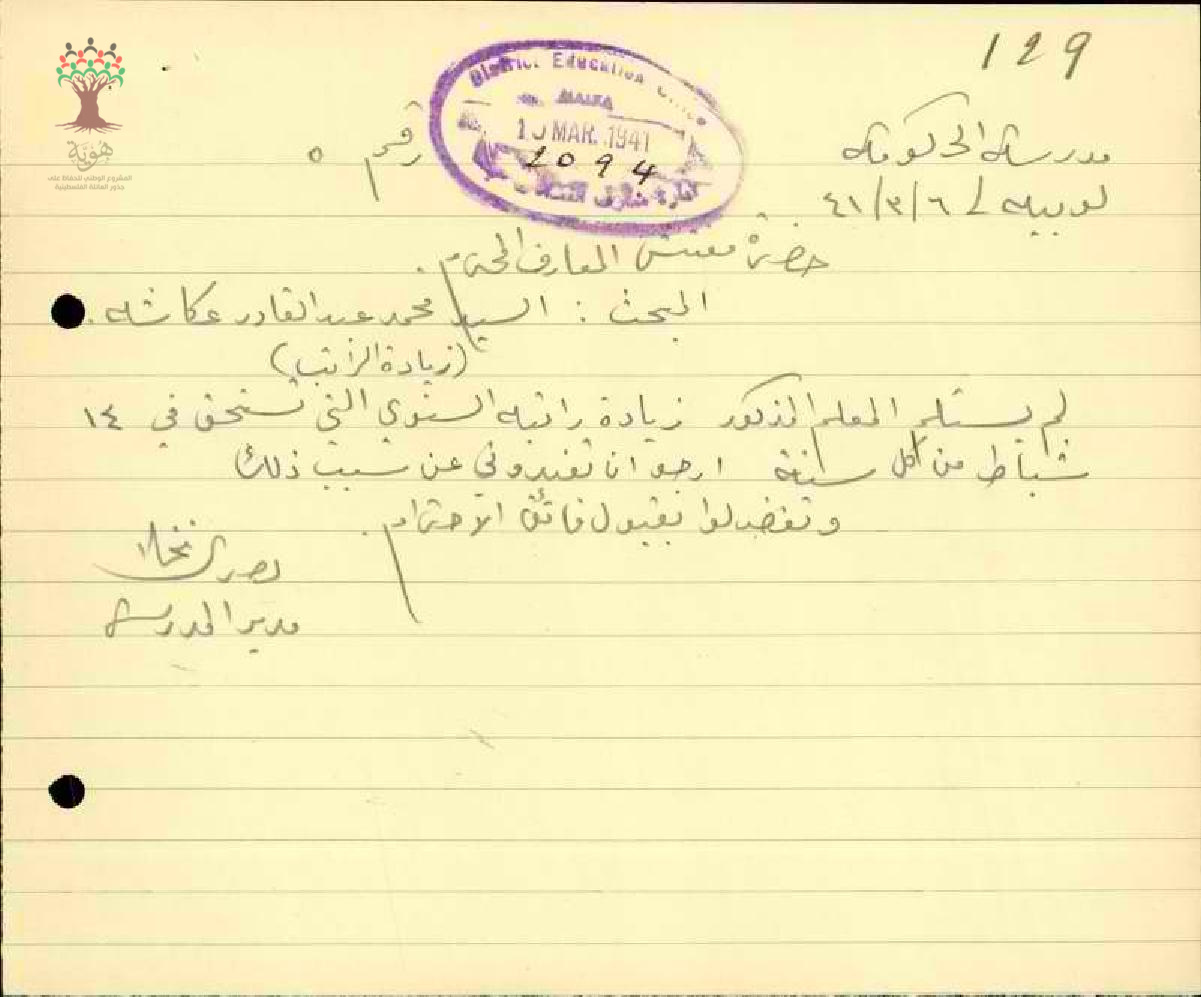 129
هوية
المشروع الوطني للحفاظ على
جذور العائلة الفلسطينية
District Education
HAIFA
10 MAR. 1941
2094
مدرسة الحكومة
رقم ٥
لوبيه في ٦/٣/٤١
حضرة مفتش المعارف المحترم.
البحث : السيد محمد عبد القادر عكاشه.
(زيادة الراتب)
لم يستلم المعلم المذكور زيادة راتبه السنوي التي تستحق في ١٤
شباط من كل سنة ارجو ان تفيدوني عن سبب ذلك
وتفضلوا بقبول فائق الاحترام.
مدير المدرسة